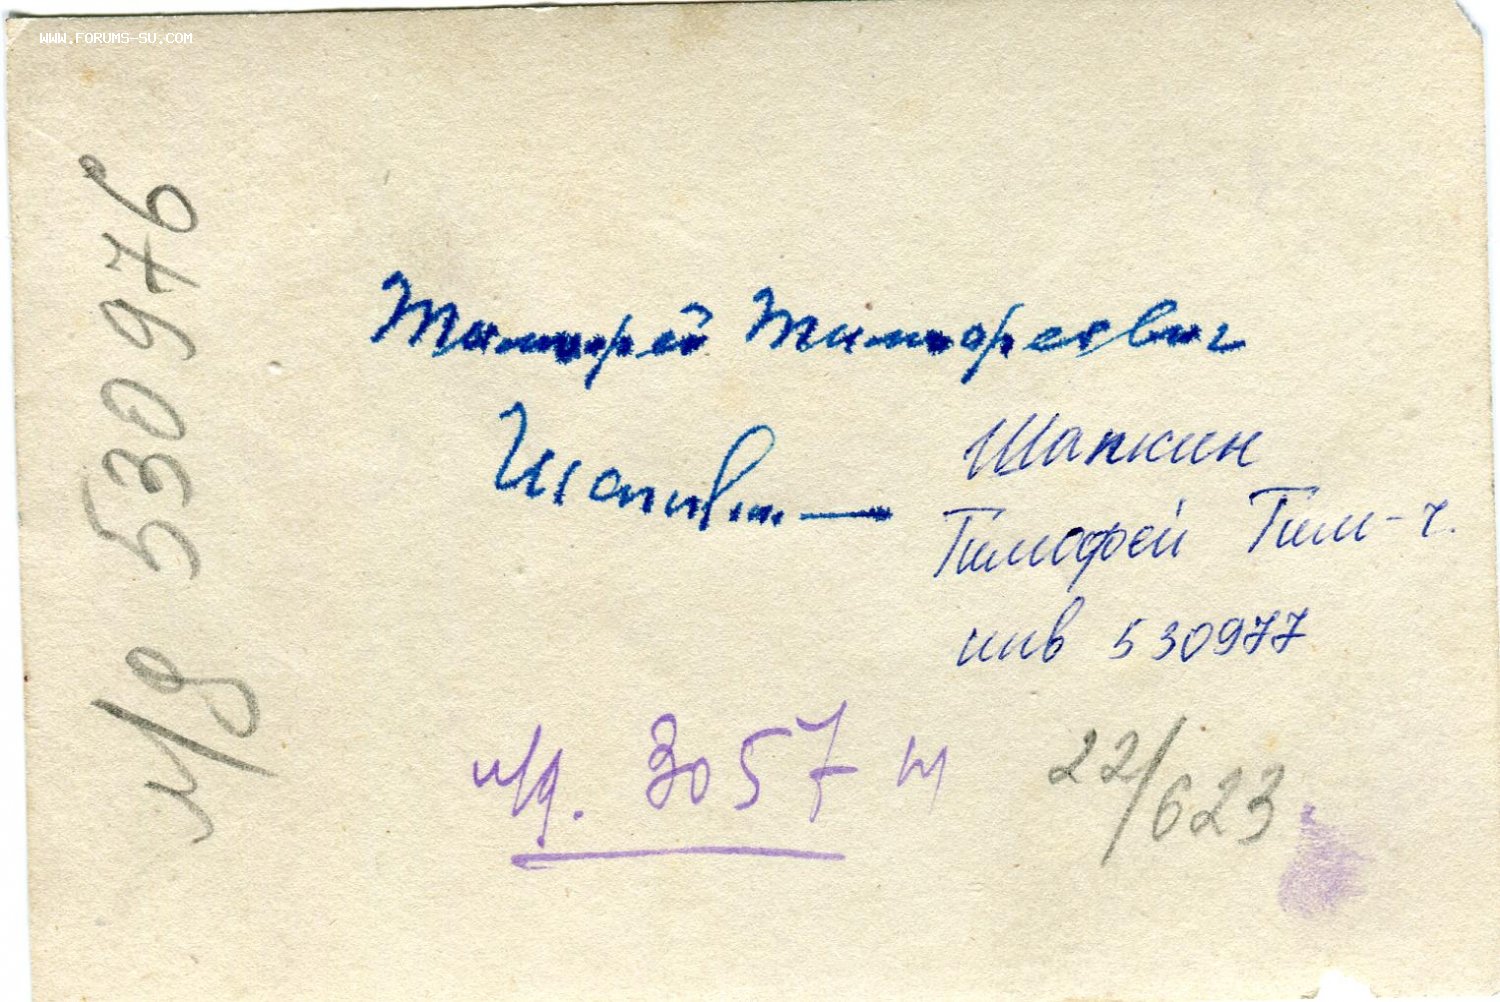 WWW.FORUMS-SU.COM
и/д 530976
Тимофей Тимофеевич
Шапкин
Шапкин
Тимофей Тим-ч.
инв 530977
и/д. 3057
22/623